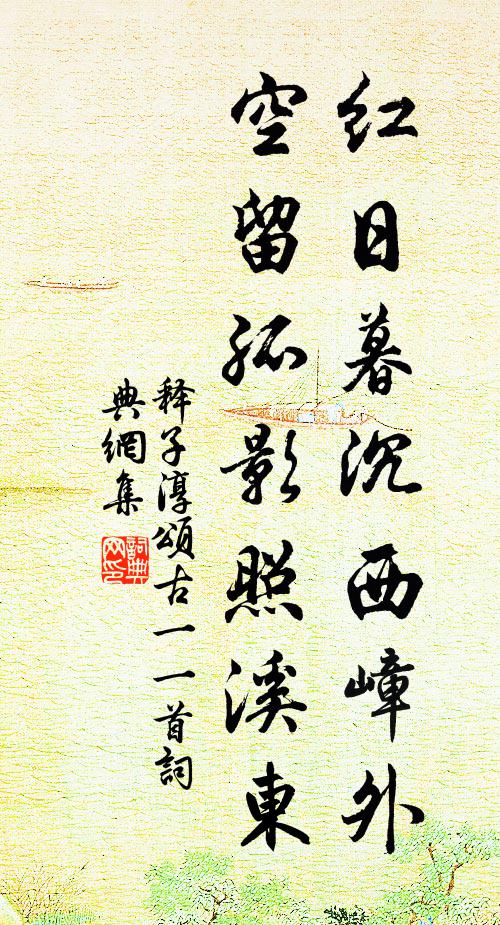 红日暮沉西嶂外
空留孤影照溪東
释子淳頌古一一首詞
典網集
詞典
网印